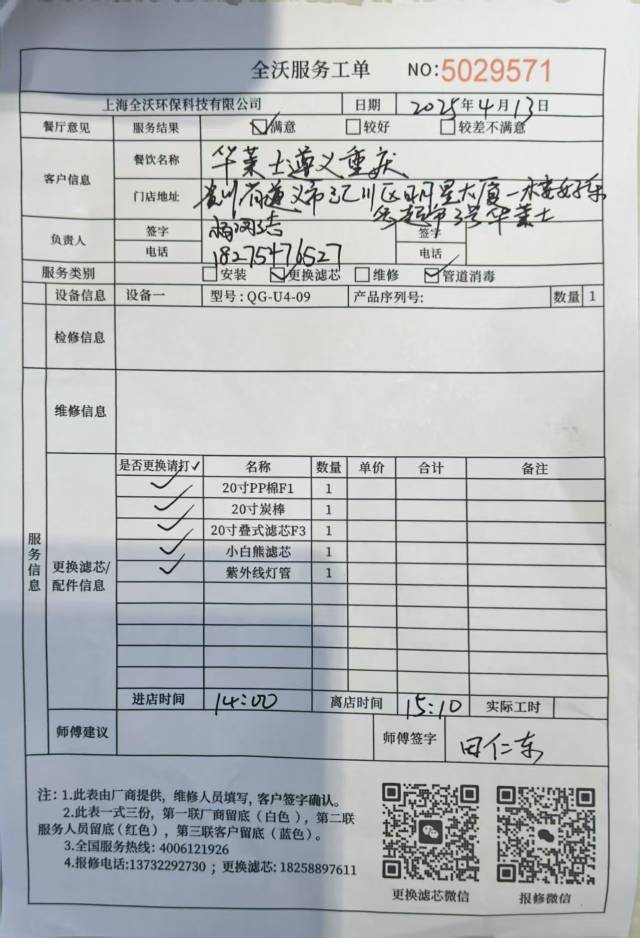 全沃服务工单 NO:5029571
上海全沃环保科技有限公司 日期 2025年4月13日
餐厅意见 服务结果 ☑满意 □较好 □较差不满意
客户信息 餐饮名称 华莱士遵义重庆
门店地址 贵州省遵义市汇川区明星大厦一楼好乐
多超市3号华莱士
负责人 签字 签字
电话 18275476527 电话
服务类别 □安装 ☑更换滤芯 □维修 ☑管道消毒
设备信息 设备一 型号:QG-U4-09 产品序列号: 数量 1
服务信息
检修信息
维修信息
更换滤芯/配件信息
是否更换请打✓ 名称 数量 单价 合计 备注
✓ 20寸PP棉F1 1
✓ 20寸炭棒 1
✓ 20寸叠式滤芯F3 1
✓ 小白熊滤芯 1
✓ 紫外线灯管 1
进店时间 14:00 离店时间 15:10 实际工时
师傅建议 师傅签字 田仁东
注:1.此表由厂商提供，维修人员填写，客户签字确认。
2.此表一式三份，第一联厂商留底（白色），第二联
服务人员留底（红色），第三联客户留底（蓝色）。
3.全国服务热线: 4006121926
4.报修电话:13732292730；更换滤芯: 18258897611
更换滤芯微信 报修微信